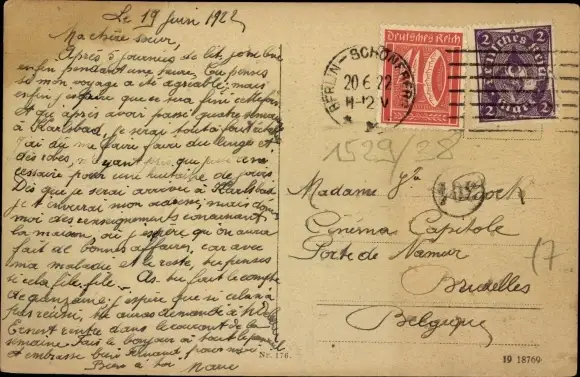 Le 19 Juin 1922
Ma chère soeur,
Après 5 journées de lit, je me lève
enfin pendant une heure. Tu penses
si mon voyage a été agréable; mais
enfin j'espère que ce sera fini cette fois
et qu'après avoir passé quatre semaines
à Karlsbad, je serai tout à fait rétablie
J'ai dû me faire faire du linge et
des robes, n'ayant pris que
cessaire pour une huitaine de jours.
Dès que je serai arrivée à Karlsbad
je t'enverrai mon adresse; mais donne
moi des renseignements concernant
la maison, où j'espère qu'on aura
fait de bonnes affaires, car avec
ma maladie et le reste, tu penses
si cela file, file. As-tu fait le compte
de quinzaine; j'espère que si cela n'a
pas réussi, tu auras demandé à
Ernest rentre dans le courant de la
semaine. Fais le bonjour à tout le
et embrasse bien Fernand pour moi.
Bons à toi
Deutsches Reich
40
2 Deutsches Reich 2
2 Mark 2
BERLIN-SCHÖNEBERG
20.6.22
11-12 V
1529/28
Madame
Cinéma Capitole
Porte de Namur
Bruxelles
Belgique
17
Nr. 176.
19 18769